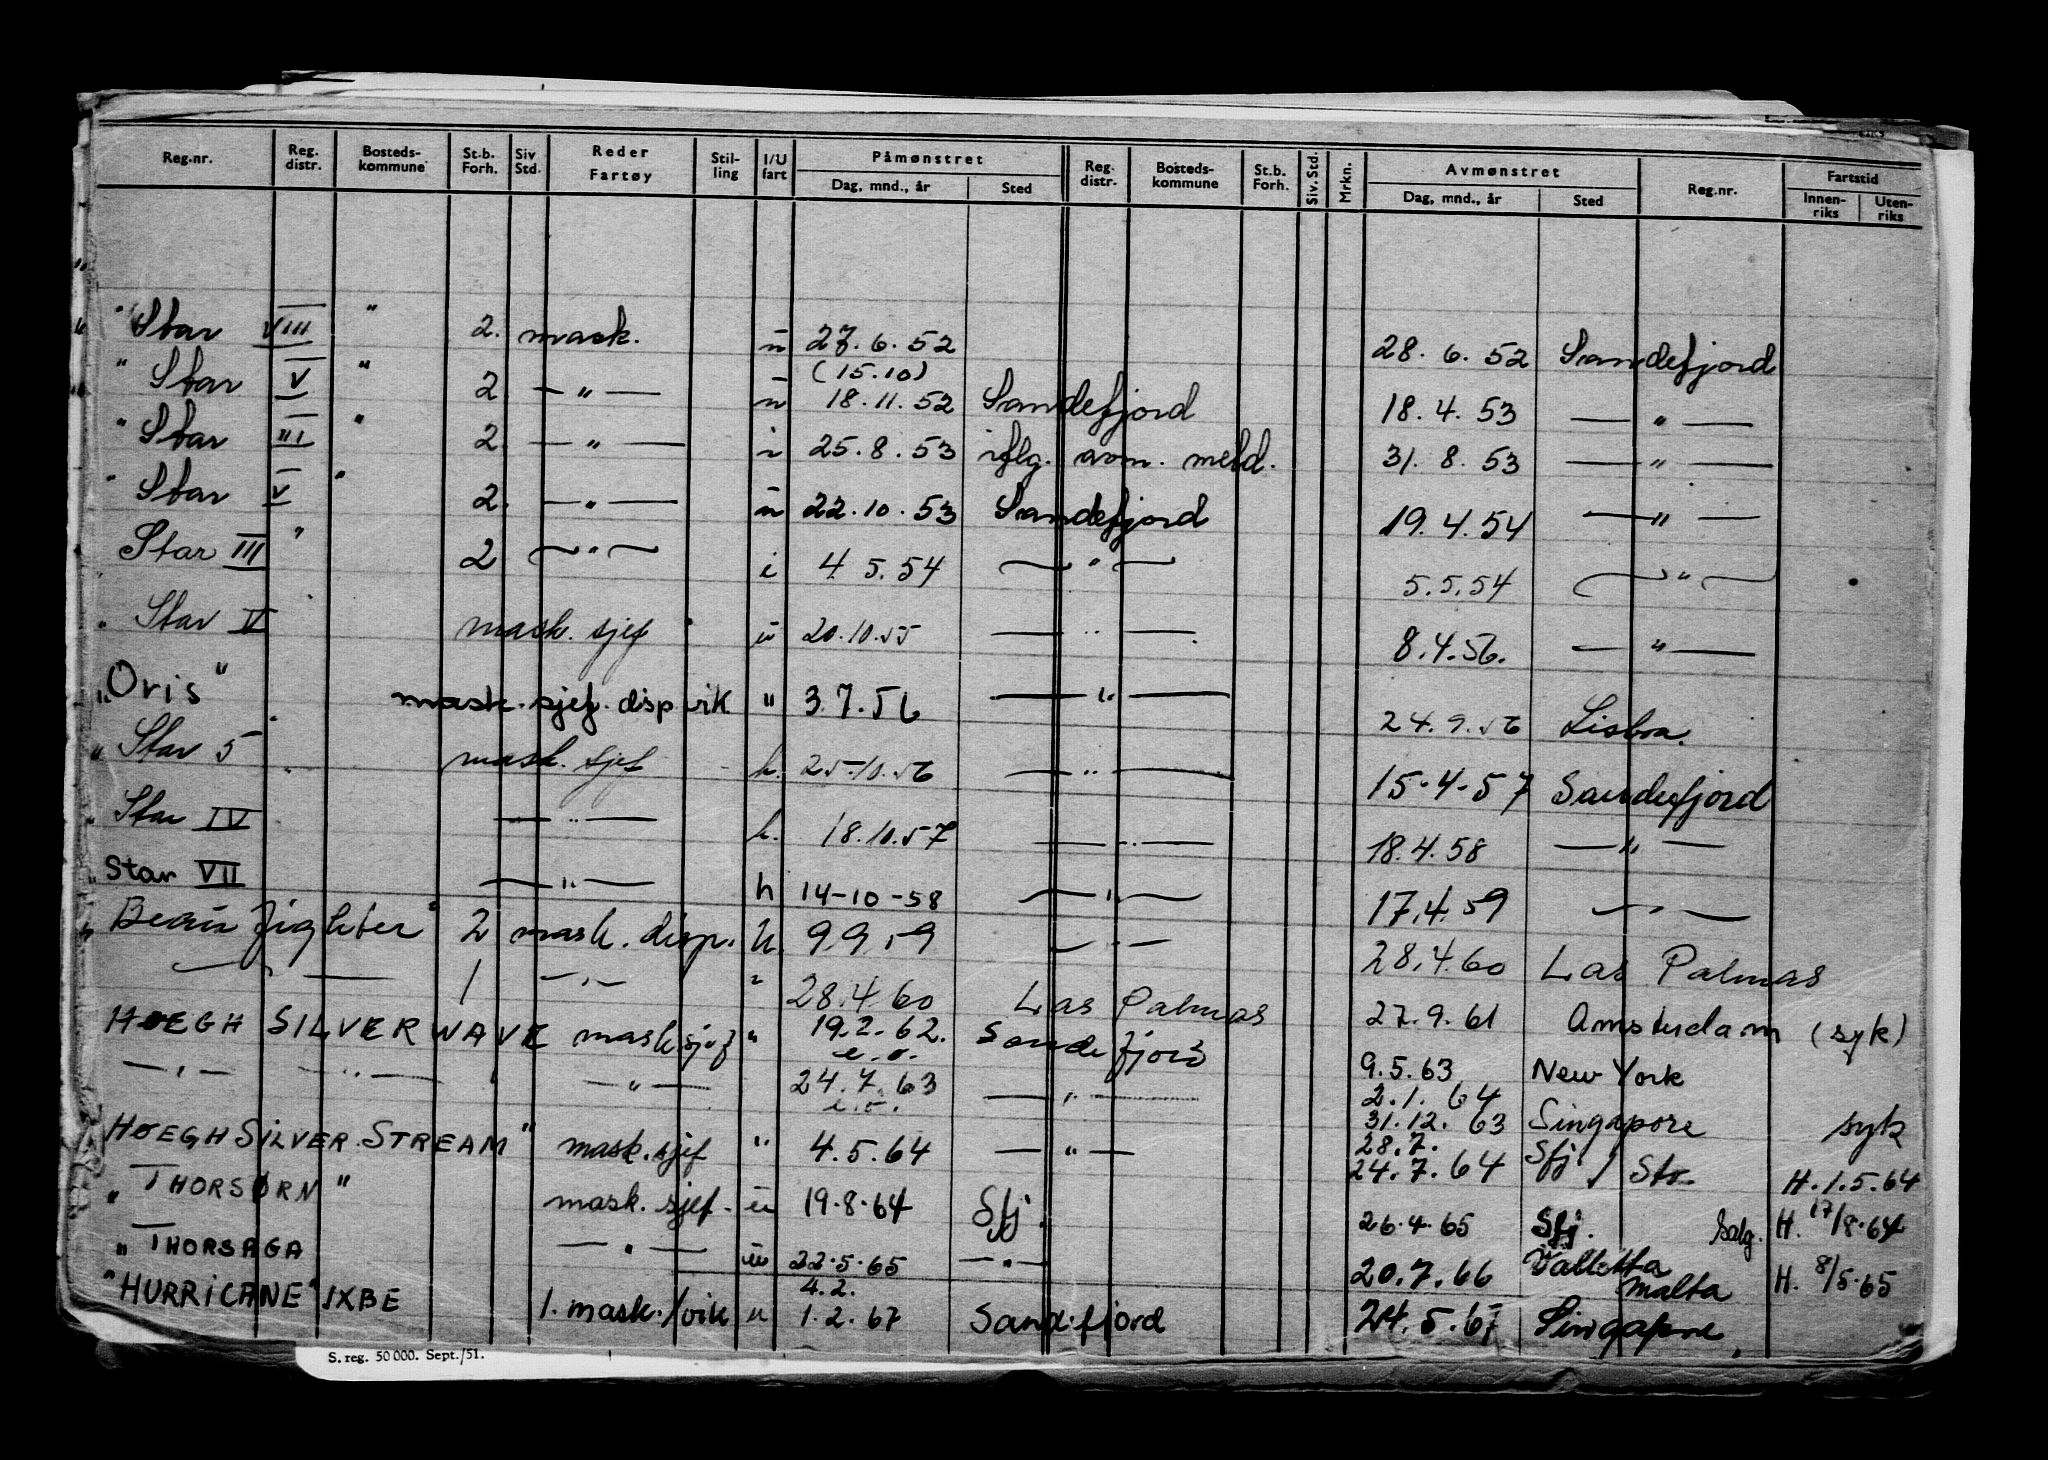 Reg.nr. Reg. distr. Bosteds-kommune St.b. Forh. Siv Std. Reder Fartøy Stil-ling I/U fart Påmønstret Dag, mnd., år Sted Reg. distr. Bosteds-kommune St.b. Forh. Siv. Std. Mrkn. Avmønstret Dag, mnd., år Sted Reg.nr. Fartstid Innen-riks Uten-riks
"Star VIII" 2. mask. u 27.6.52 28.6.52 Sandefjord
(15.10)
"Star V" 2 — " — u 18.11.52 Sandefjord 18.4.53 — " —
"Star III" 2 — " — i 25.8.53 iflg. avm. meld. 31.8.53 — " —
"Star V" 2. — " — u 22.10.53 Sandefjord 19.4.54 — " —
Star III" 2 — " — i 4.5.54 — " — 5.5.54 — " —
"Star V" mask. sjef u 20.10.55 — " — 8.4.56. — " —
"Oris" mask. sjef. disp vik " 3.7.56 — " — 24.9.56 Lisboa.
"Star 5" mask. sjef u. 25.10.56 — " — 15.4.57 Sandefjord
"Star IV — " — u. 18.10.57 — " — 18.4.58 — " —
"Star VII — " — u 14-10-58 — " — 17.4.59 — " —
"Beau fighter" 2 mask. disp. u. 9.9.59 — " — 28.4.60 Las Palmas
— " — 1 — " — " 28.4.60 Las Palmas 27.9.61 Amsterdam (syk)
HOEGH SILVERWAVE mask sjef " 19.2.62. e.o. Sandefjord 9.5.63 New York
— " — — " — — " — 24.7.63 e.o. — " — 2.1.64
31.12.63 Singapore syk
HOEGH SILVER STREAM" mask. sjef " 4.5.64 — " — 28.7.
24.7.64 Sfj / Str. H. 1.5.64
"THORSØRN" mask. sjef. u 19.8.64 Sfj. 26.4.65 Sfj. salg. H. 17/8.64
"THORSAGA — " — u 22.5.65 — " — 20.7.66 Valletta Malta H. 8/5.65
4.2.
"HURRICANE" IXBE 1. mask./vik u 1.2.67 Sandefjord 24.5.67 Singapore.
S. reg. 50 000. Sept./51.